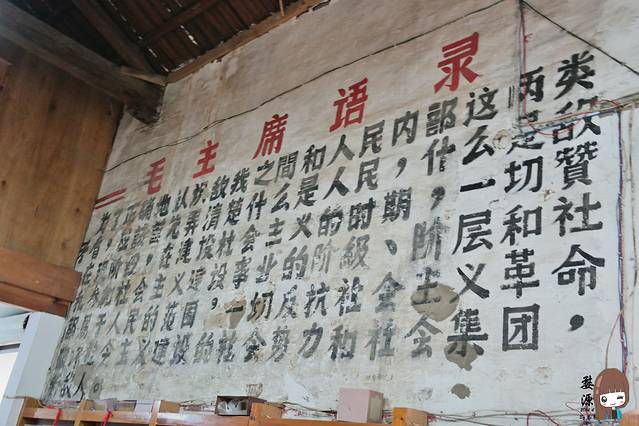 毛主席语录
为了正确地认识敌我之間和人民内部这两类
应该首先弄清楚什么是人民,什么是敌
在现阶段,在建设社会主义的时期,一切赞
参加社会主义建设事业的阶级、阶层和社
都属于人民的范围,一切反抗社会主义革命,
社会主义建设的社会势力和社会集团
敌人。
婺源